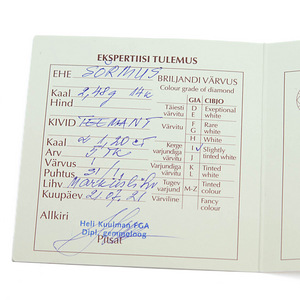 EKSPERTIISI TULEMUS
EHE SÕRMUS
Kaal 2,48g 14k
Hind
KIVID TEEMANT
Kaal 1,20 ct
Arv 5 TK
Värvus
Puhtus
Lihv Markiislihv
Kuupäev
Allkiri
Heli Kuulman FGA
Dipl. gemmoloog
Pitsat
BRILJANDI VÄRVUS
Colour grade of diamond
GIA CIBJO
Täiesti värvitu D E Exeptional white
Värvitu F G Rare white
H White
Kerge varjundiga värvitu I J Slightly tinted white
Varjundiga värvitu K L Tinted white
Tugev varjund M-Z Tinted colour
Värviline Fancy colour